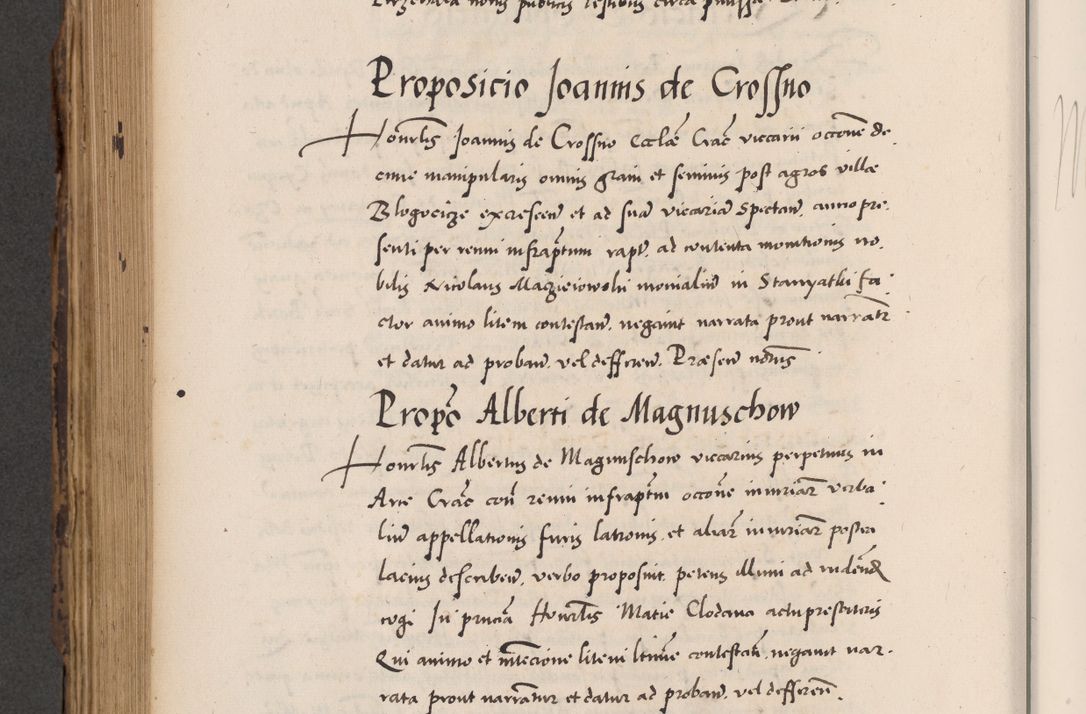 Proposicio Joannis de Crossno
Honrlis Joannis de Crossno Ecclae Crac viccarii occone de
cime manipularis omnis grani et seminis post agros villae
Blogocicze excrescen et ad sua vicaria Spectan, anno pre
senti per reum infraptum rapt, ad contenta monitionis no,
bilis Nicolaus Maczieiowski monialiu in Stanyatki fa
ctor animo litem contestan, negavit narrata prout narrantr
et datur ad proban, vel defferen, Praesen notris
Propo Alberti de Magnuschow
Honrlis Albertus de Magnuschow viccarius perpetuus in
Arce Crac con reum infraptm occone iniuriar verba
liu appellationis furis latronis, et aliar iniuriar posteri
lacius describen, verbo proposuit, petens illum ad
cogi In pncia Honrlis Matie Clodawa actu presbiteris
Qui animo et intecione litem contestan, negavit nar
rata prout narrantur et datur ad proban, vel defferen,